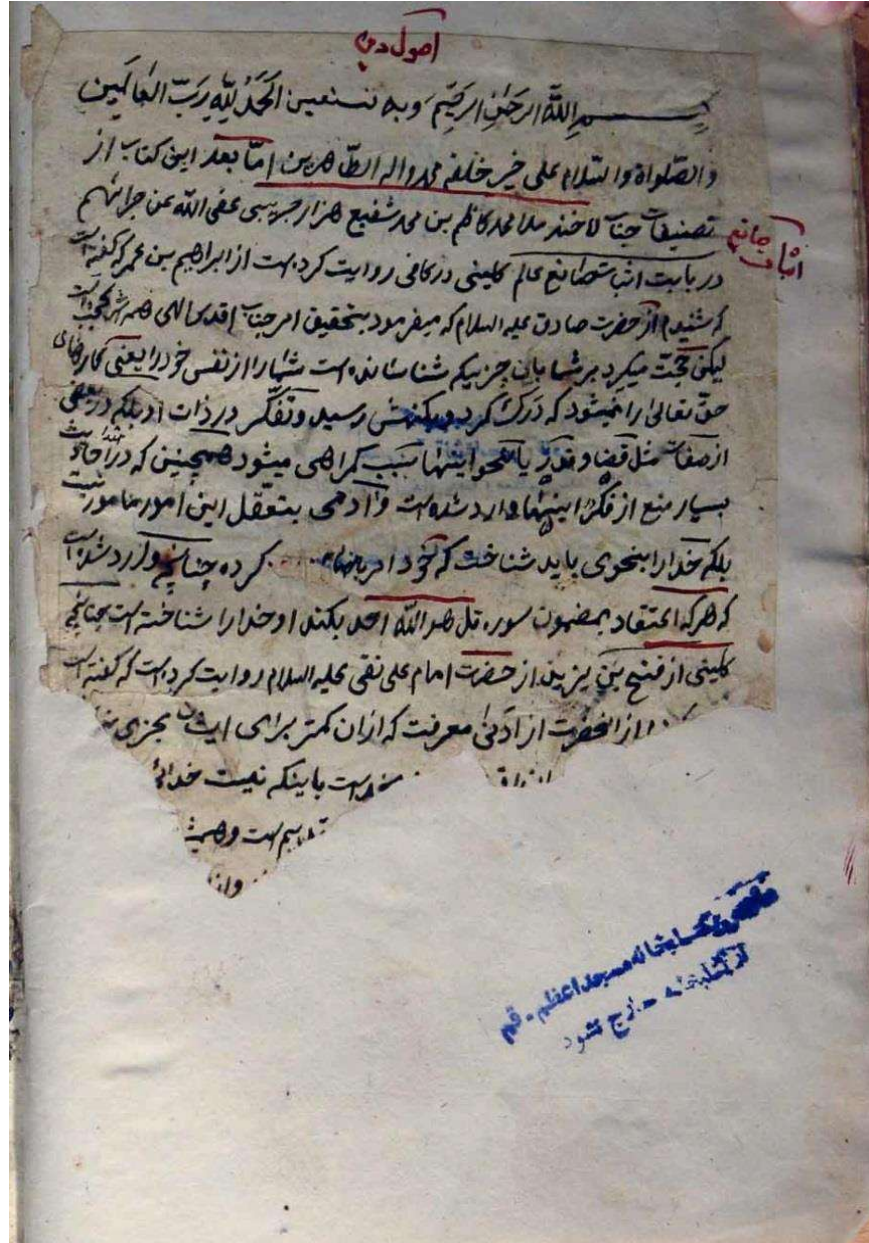 اصول دین
بسم الله الرحمن الرحیم وبه نستعین الحمد لله رب العالمین
والصلواة والسلام علی خیر خلقه محمد واله الطاهرین اما بعد این کتاب از
تصنیفات جناب اخند ملا محمد کاظم بن محمد شفیع هزار جریبی عفی الله عن جرائمهم
اثبات صانع
در بابت اثبات صانع عالم کلینی در کافی روایت کرده است از ابراهیم بن عمر که گفته است
که شنیدم از حضرت صادق علیه السلام که میفرمود بتحقیق امر جناب اقدس الهی همه
لیکن حجت میکرد بر شما بان چیزیکه شناسانده است شما را از نفس خود را یعنی
حق تعالی را نمیشود که درک کرد و بکنهش رسید و تفکر در ذات او بلکه در بعضی
از صفات مثل قضا و قدر یا نحو اینها سبب گمراهی میشود همچنین که در احادیث
بسیار منع از فکر اینها وارد شده است و آدمی بتعقل این امور مامور نیست
بلکه خدا را بنحوی باید شناخت که خود امر کرده چنانچه وارد شده است
که هر که اعتقاد بمضمون سوره قل هو الله احد بکند او خدا را شناخته است چنانچه
کلینی از فتح بن یزید از حضرت امام علی نقی علیه السلام روایت کرده است که گفته است
از انحضرت از ادنی معرفت که از ان کمتر برای ایشان مجزی
است باینکه نیست خدائی
است و
کتابخانه مسجد اعظم - قم
از کتابخانه خارج نشود